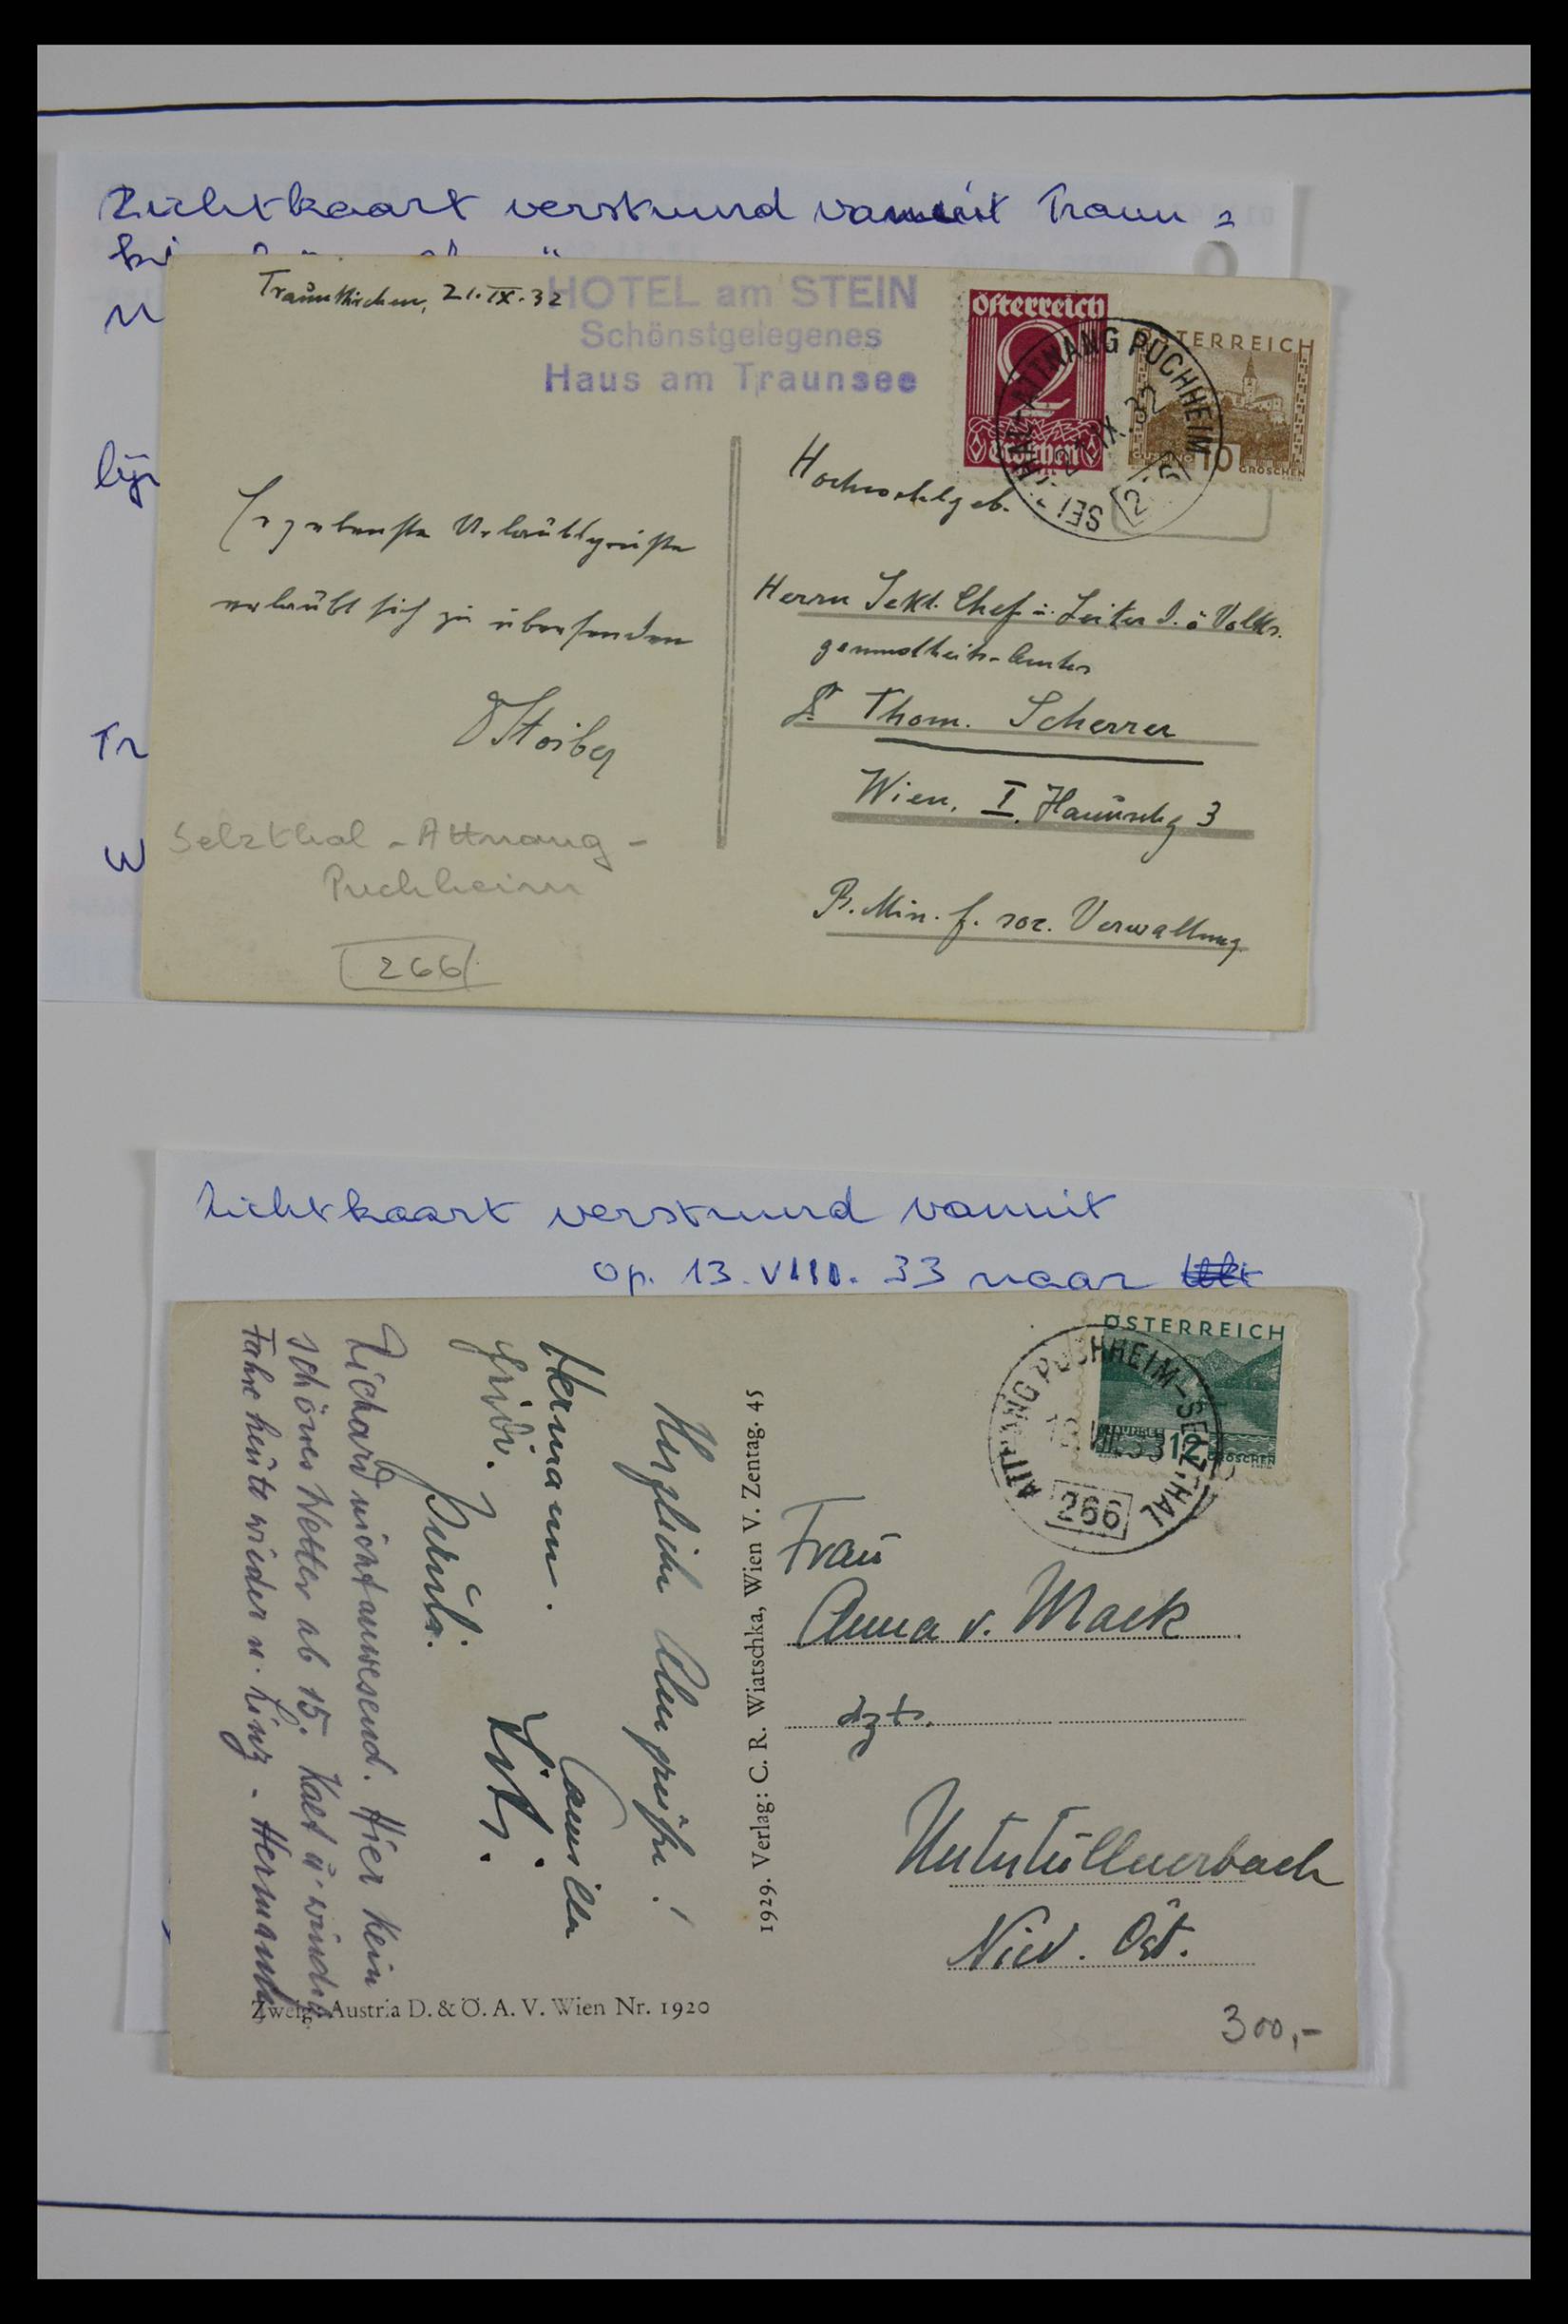 Zichtkaart verstuurd vanuit Traun =
Traunkirchen, 21.IX.32
HOTEL am STEIN
Schönstgelegenes
Haus am Traunsee
österreich
2
Groschen
ÖSTERREICH
10
GROSCHEN
ATTNANG PUCHHEIM
IX.32
Ergebenste Urlaubsgrüße
erlaubt sich zu übersenden
Stoiber
Hochwohlgeb.
Herrn Sekt. Chef u. Leiter d. ö. Volks-
gesundheits-Amtes
Dr Thom. Scherrer
Wien, I.
3
B. Min. f. soz. Verwaltung
Selzthal - Attnang -
Puchheim
266
lijn
Tr
W
Zichtkaart verstuurd vanuit
op. 13. VIII. 33 naar
ÖSTERREICH
12
GROSCHEN
ATTNANG PUCHHEIM-SELZTHAL
13.VIII.33
266
Herzliche
Camilla
Hermann.
Richard nicht anwesend. Hier kein
schönes Wetter ab 15. Kalt u. windig
Fahre heute wieder n. Linz - Hermann
1929. Verlag: C. R. Wiatschka, Wien V. Zentag. 45
Frau
Anna v. Mack
dzt.
Untertullnerbach
Nied. Öst.
Zweig Austria D. & Ö. A. V. Wien Nr. 1920
300,-